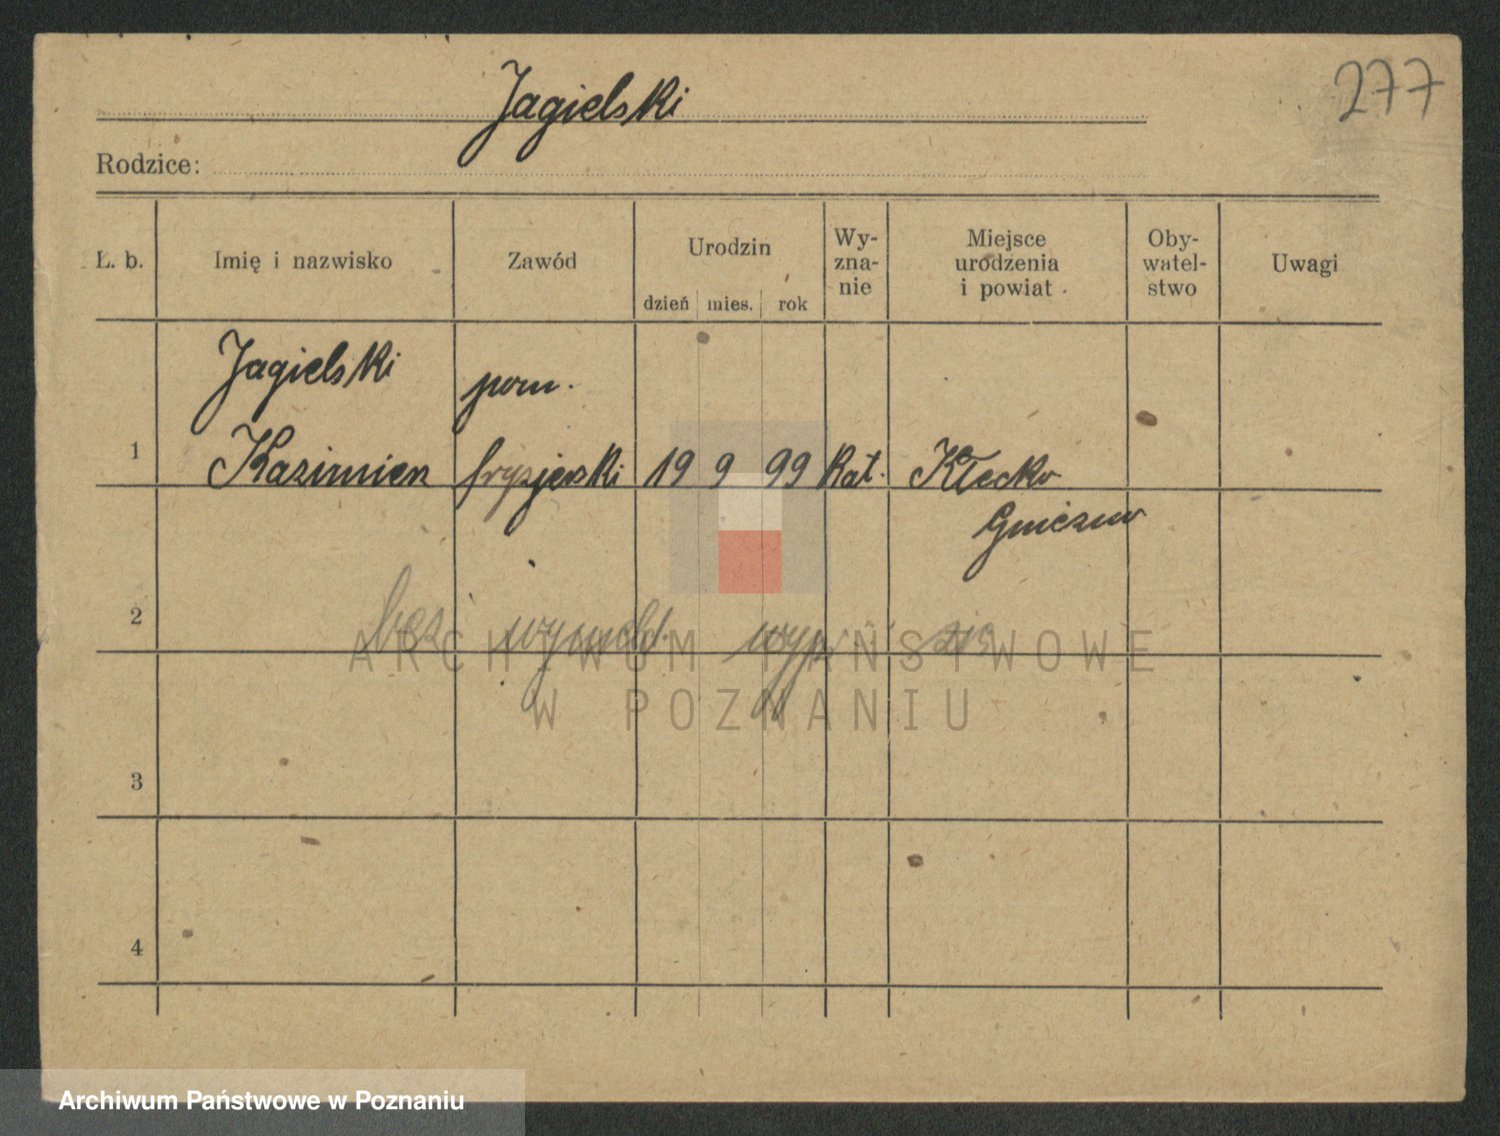 277
Jagielski
Rodzice:
L. b.
Imię i nazwisko
Zawód
Urodzin
dzień mies. rok
Wy-
zna-
nie
Miejsce
urodzenia
i powiat
Oby-
watel-
stwo
Uwagi
Jagielski pom.
1 Kazimierz fryzjerski 19 9 99 kat. Kłecko
Gniezno
2 bez wymeld. wyp.
ARCHIWUM PAŃSTWOWE
W POZNANIU
3
4
Archiwum Państwowe w Poznaniu